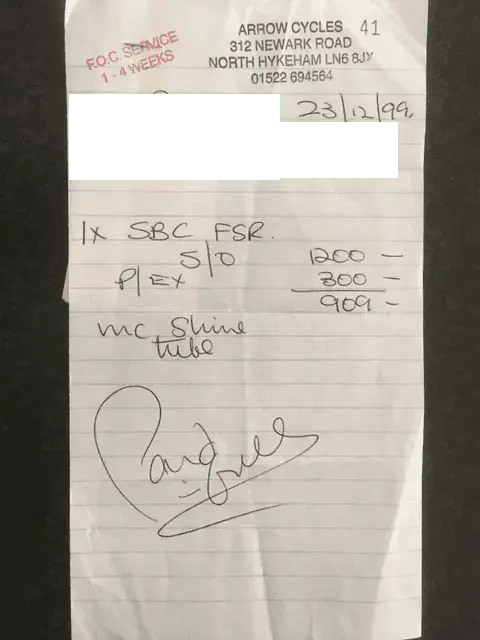 ARROW CYCLES 41
312 NEWARK ROAD
NORTH HYKEHAM LN6 8JY
01522 694564
F.O.C. SERVICE
1 - 4 WEEKS
23/12/99.
1x SBC FSR.
S/O 1200 —
P/EX 300 —
909 —
MC Shine
tube
Paid